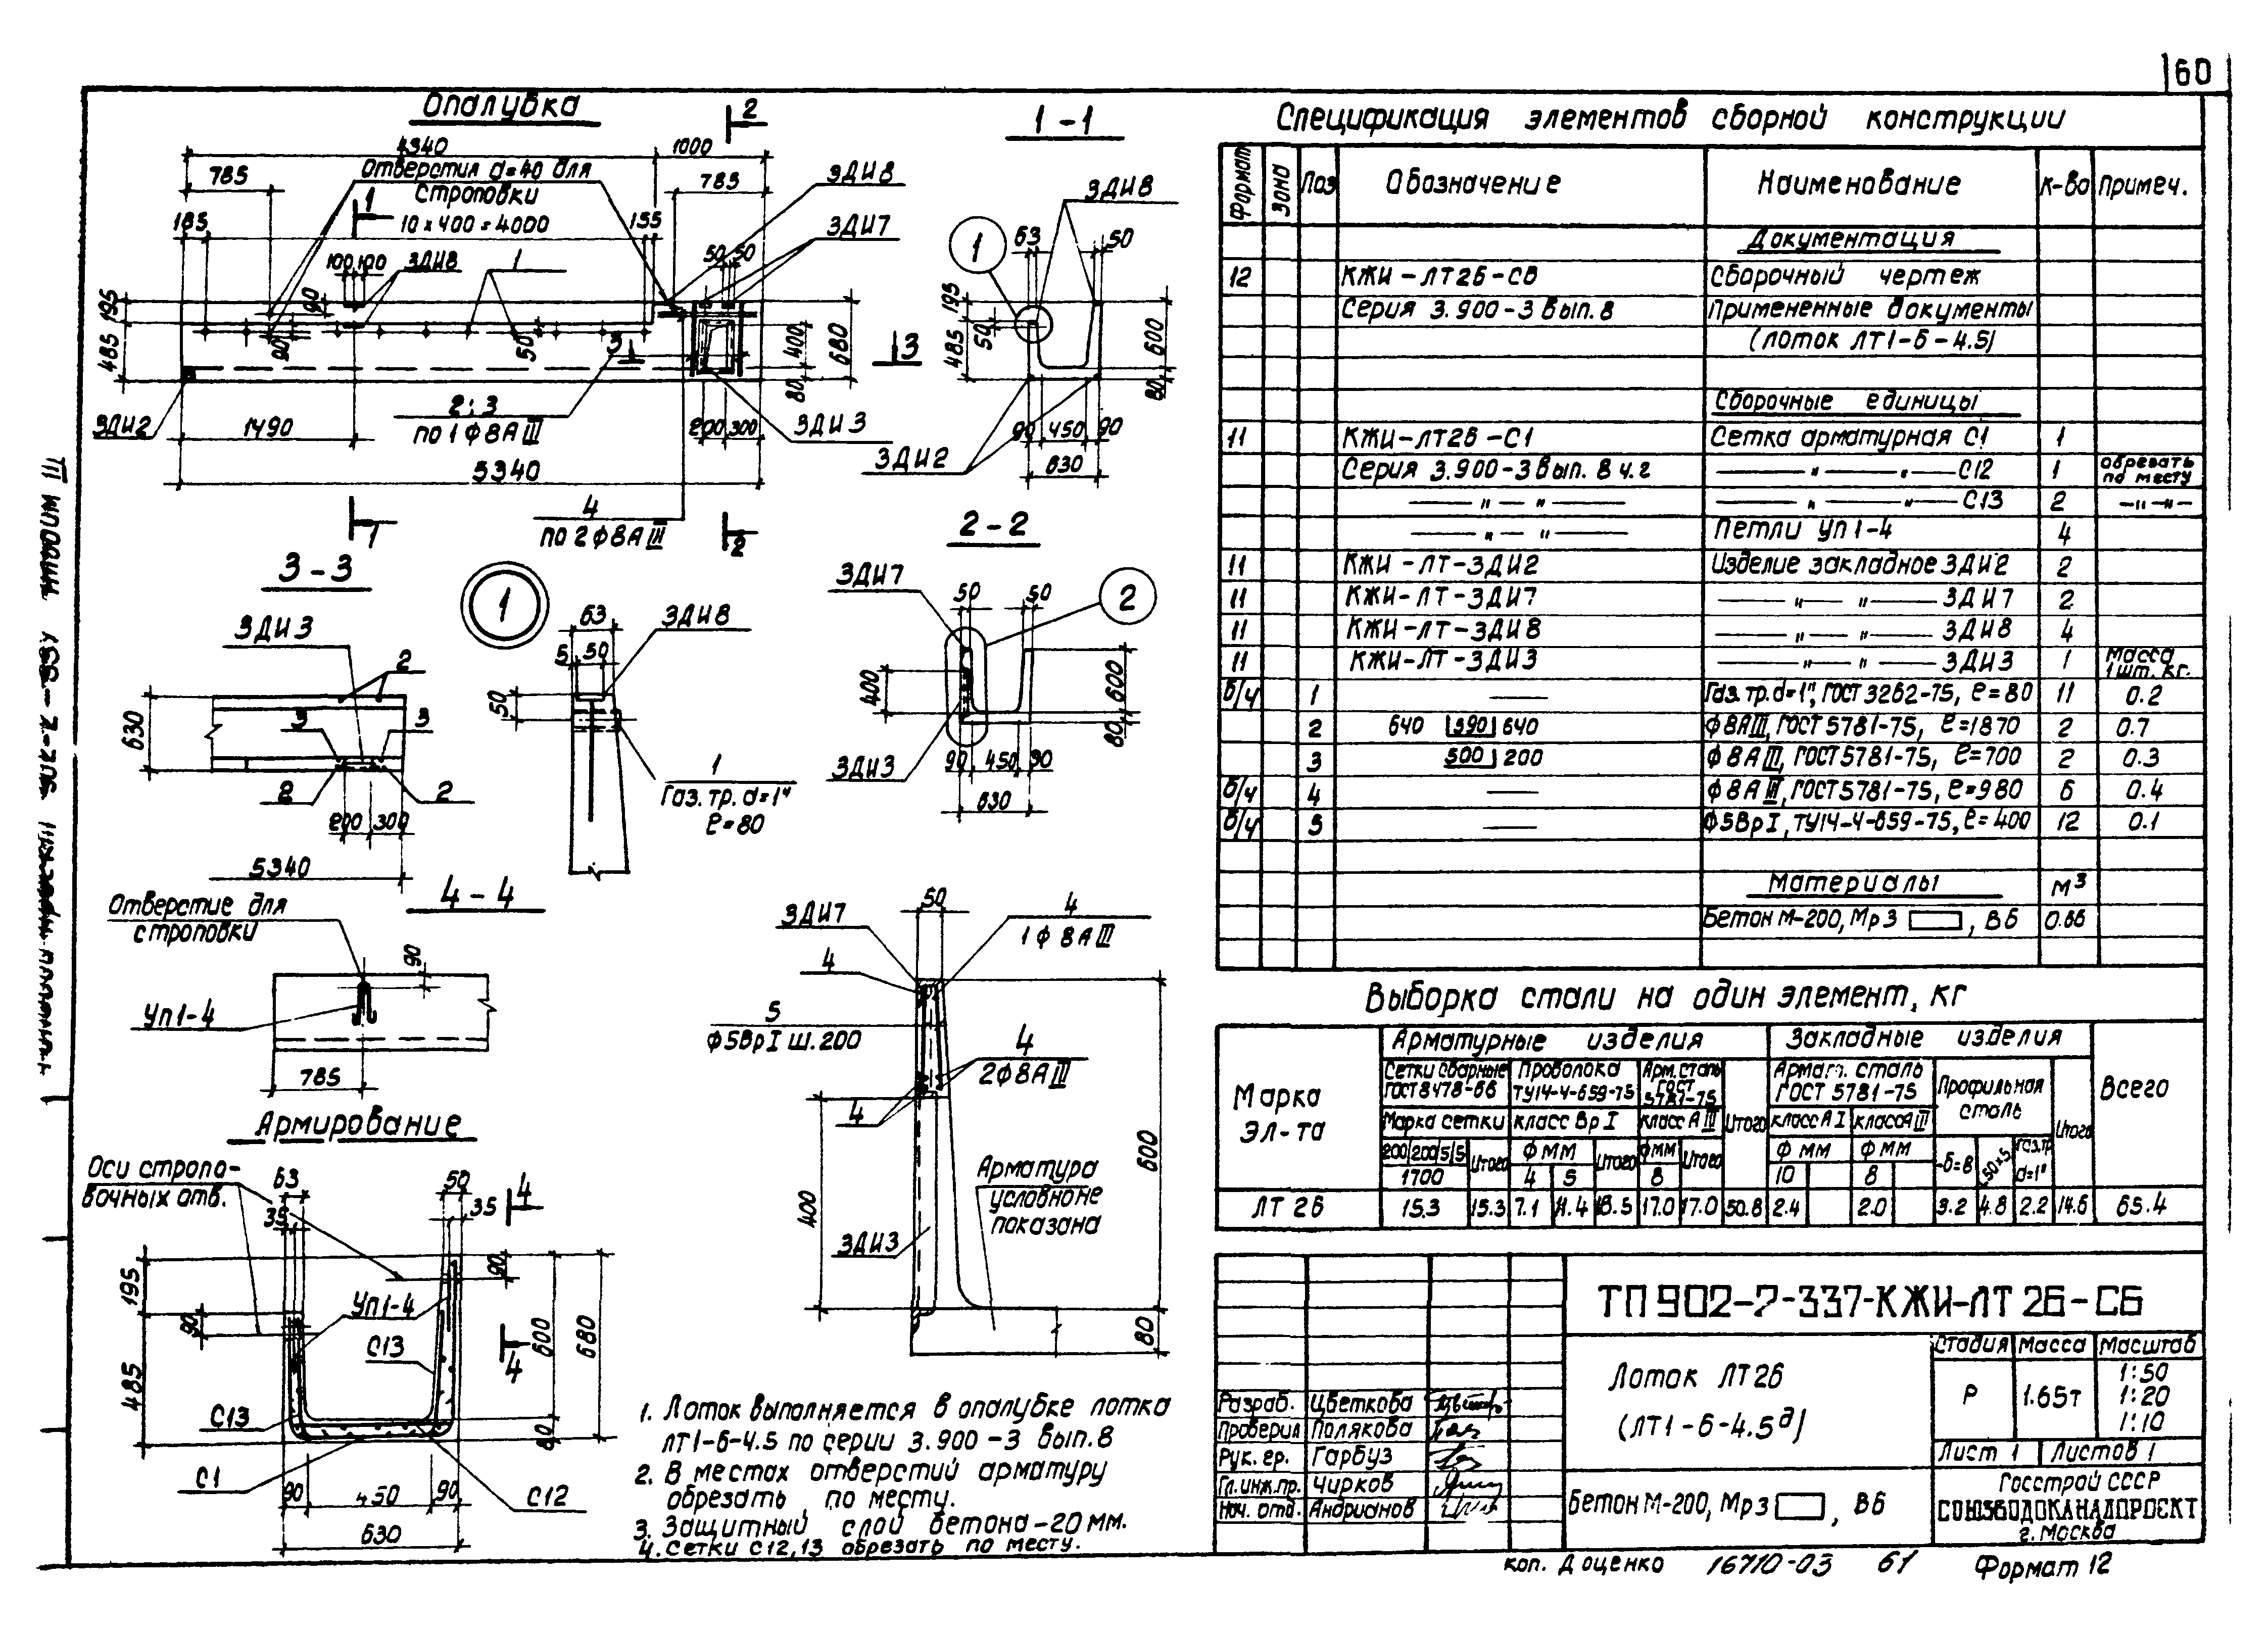 60
Опалубка
4340
1000
2
Отверстия d=40 для
строповки
785
785
ЗДИ8
1
10 х 400 = 4000
185
155
ЗДИ7
50 50
100 100
ЗДИ8
1
90
195
485
90
50
3
400
680
80
3
ЗДИ2
1490
2; 3
по 1 ф 8 А III
200 300
ЗДИ 3
5340
4
по 2 ф 8 А III
1
2
1-1
ЗДИ8
1
63
50
195
485
50
600
80
90 450 90
630
ЗДИ2
3-3
ЗДИ3
2
3
3
630
2
2
200 300
5340
1
63
ЗДИ8
5 50
50
1
Газ. тр. d=1"
ℓ=80
2-2
ЗДИ7
50
50
2
400
600
80
ЗДИ3
90 450 90
630
4-4
Отверстие для
строповки
90
Уп1-4
785
ЗДИ7
50
4
1 ф 8 А III
4
5
ф5Вр I ш. 200
4
2ф8А III
4
600
400
Арматура
условно не
показана
ЗДИ3
80
Армирование
Оси стропо-
вочных отв.
63
50
4
35
35
195
90
90
Уп1-4
С13
600
680
4
485
С13
80
С1
С12
90 450 90
630
1. Лоток выполняется в опалубке лотка
ЛТ1-6-4.5 по серии 3.900-3 вып. 8
2. В местах отверстий арматуру
обрезать по месту.
3. Защитный слой бетона-20мм.
4. Сетки С12,13 обрезать по месту.
Спецификация элементов сборной конструкции
Формат Зона Поз Обозначение Наименование К-во Примеч.
Документация
12 КЖИ-ЛТ26-СБ Сборочный чертеж
Серия 3.900-3 вып. 8 Примененные документы
(лоток ЛТ1-6-4.5)
Сборочные единицы
11 КЖИ-ЛТ26-С1 Сетка арматурная С1 1
Серия 3.900-3 вып. 8 ч. 2 — " — " — С12 1 обрезать по месту
— " — " — — " — " — С13 2 — " — " —
— " — " — Петли Уп1-4 4
11 КЖИ-ЛТ-ЗДИ2 Изделие закладное ЗДИ2 2
11 КЖИ-ЛТ-ЗДИ7 — " — " — ЗДИ7 2
11 КЖИ-ЛТ-ЗДИ8 — " — " — ЗДИ8 4
11 КЖИ-ЛТ-ЗДИ3 — " — " — ЗДИ3 1 Масса 1 шт. кг.
б/ч 1 — Газ. тр. d=1", ГОСТ 3262-75, ℓ=80 11 0.2
2 640 390 640 ф8АIII, ГОСТ 5781-75, ℓ=1870 2 0.7
3 500 200 ф8АIII, ГОСТ 5781-75, ℓ=700 2 0.3
б/ч 4 — ф8АIII, ГОСТ 5781-75, ℓ=980 6 0.4
б/ч 5 — ф5ВрI, ТУ14-4-659-75, ℓ=400 12 0.1
Материалы м3
Бетон М-200, Мрз , В6 0.66
Выборка стали на один элемент, кг
Марка эл-та
Арматурные изделия
Закладные изделия
Всего
Сетки сварные ГОСТ 8478-66
Проволока ТУ14-4-659-75
Арм. сталь ГОСТ 5781-75
Итого
Армат. сталь ГОСТ 5781-75
Профильная сталь
Итого
Марка сетки класс Вр I класс А III класс А I класс А III
200/200/5/5 Итого ф мм Итого ф мм Итого ф мм ф мм -δ=8 газ.тр d=1"
1700 4 5 8 10 8
ЛТ 26 15.3 15.3 7.1 11.4 18.5 17.0 17.0 50.8 2.4 2.0 3.2 4.8 2.2 14.6 65.4
ТП 902-2-337-КЖИ-ЛТ 26-СБ
Лоток ЛТ26
(ЛТ1-6-4.5д)
Стадия Масса Масштаб
Р 1.65т 1:50
1:20
1:10
Лист 1 Листов 1
Разраб. Цветкова
Проверил Полякова
Рук. гр. Гарбуз
Гл. инж. пр. Чирков
Нач. отд. Андрианов
Бетон М-200, Мрз , В6
Госстрой СССР
СОЮЗВОДОКАНАЛПРОЕКТ
г. Москва
коп. Доценко 16710-03 61 Формат 12